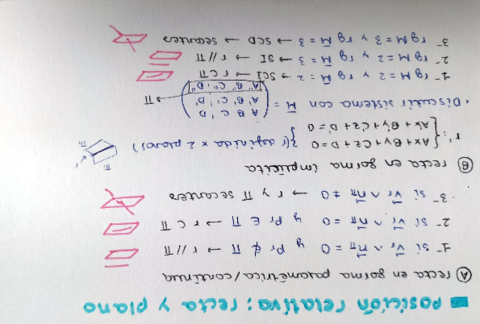 POSICIÓN relativa: recta y plano
Ⓐ recta en forma paramétrica/continua
1- Si v⃗r ∧ n⃗π = 0 y Pr ∉ π → r // π
2- Si v⃗r ∧ n⃗π = 0 y Pr ∈ π → r ⊂ π
3- Si v⃗r ∧ n⃗π ≠ 0 → r y π secantes
Ⓑ recta en forma implícita
r: { Ax + By + Cz + D = 0
A'x + B'y + C'z + D' = 0 } (r definida x 2 planos)
• Discutir sistema con M̄ = ( A B C D
A' B' C' D'
A'' B'' C'' D'' ) → π
1- rg M = 2 y rg M̄ = 2 → SCI → r ⊂ π
2- rg M = 2 y rg M̄ = 3 → SI → r // π
3- rg M = 3 y rg M̄ = 3 → SCD → secantes